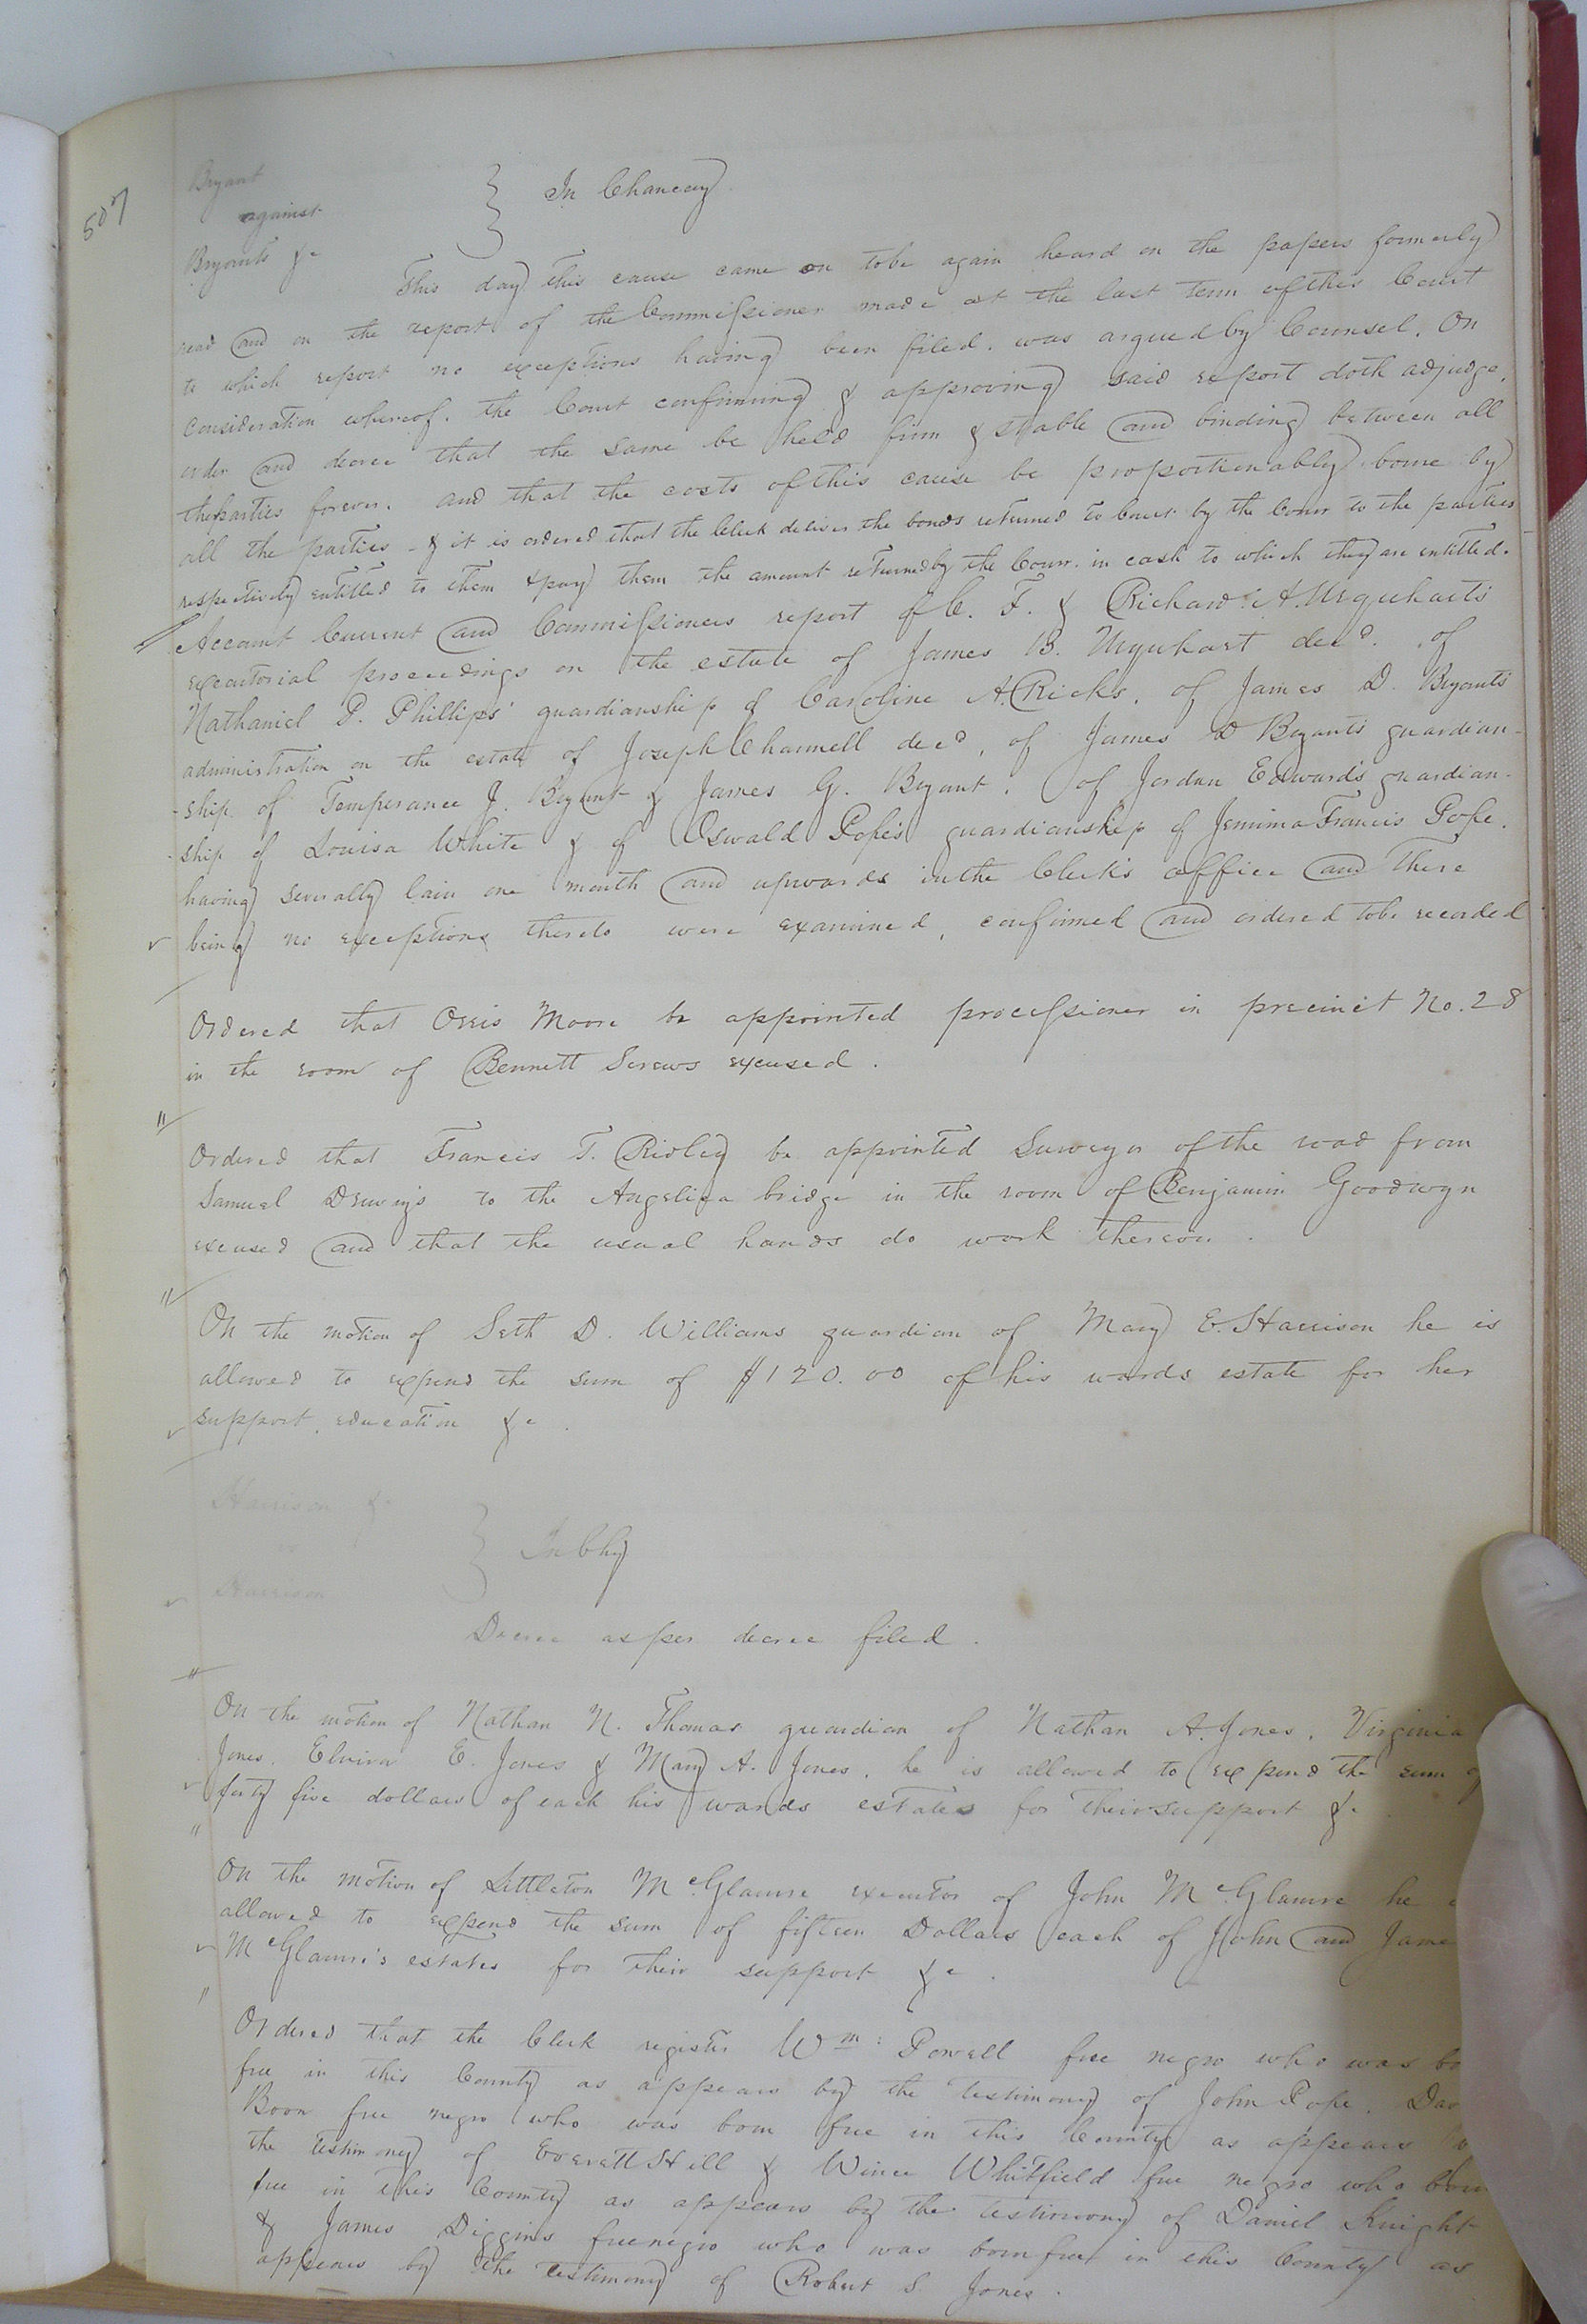 507
Bryant
against
Bryants &c
In Chancery
This day this cause came on tobe again heard on the papers formerly
read and on the report of the Commissioner made at the last term of this Court
to which report no exceptions having been filed. was argued by Counsel. On
consideration whereof. the Court confirming & approving said report doth adjudge,
order and decree that the same be held firm & stable and binding between all
the parties forever. and that the costs of this cause be proportionably borne by
all the parties - & it is ordered that the Clerk deliver the bonds returned to Court by the Comr to the parties
respectively entitled to them & pay them the amount returned by the Comr. in cash to which they are entitled.
Account Current and Commissioners report of C. F. & Richard A. Urquharts
executorial proceedings on the estate of James B. Urquhart decd. of
Nathaniel P. Phillips' guardianship of Caroline A. Ricks, of James D. Bryants
administration on the estate of Joseph Channell decd, of James D Bryants guardian-
-ship of Temperance J. Bryant & James G. Bryant, of Jordan Edwards guardian-
-ship of Louisa White & of Oswald Pope's guardianship of Jemima Francis Pope.
having severally lain one month and upwards in the Clerk's office and there
being no exceptions thereto were examined, confirmed and ordered tobe recorded
Ordered that Orris Moore be appointed processioner in precinct No. 28
in the room of Bennett Screws excused.
Ordered that Francis T. Ridley be appointed Surveyor of the road from
Samuel Drewry's to the Angelica bridge in the room of Benjamin Goodwyn
excused and that the usual hands do work thereon.
On the motion of Seth D. Williams guardian of Mary E. Harrison he is
allowed to expend the sum of $120.00 of his wards estate for her
support, education &c.
Harrison &c
vs
Harrison
In Chy
Decree as per decree filed.
On the motion of Nathan N. Thomas guardian of Nathan A. Jones, Virginia
Jones. Elvira E. Jones & Mary A. Jones, he is allowed to expend the sum
forty five dollars of each his wards estates for their support &c
On the motion of Littleton McGlamre executor of John McGlamre he
allowed to expend the sum of fifteen Dollars each of John and Jame
McGlamre's estates for their support &c.
Ordered that the Clerk register Wm: Powell free negro who was bo
free in this County as appears by the testimony of John Pope,
Boon free negro who was born free in this County as appears
the testimony of Everett Hill & Wince Whitfield free negro who born
free in this County as appears by the testimony of Daniel Knight
& James Diggins free negro who was born free in this County as
appears by the testimony of Robert S. Jones.